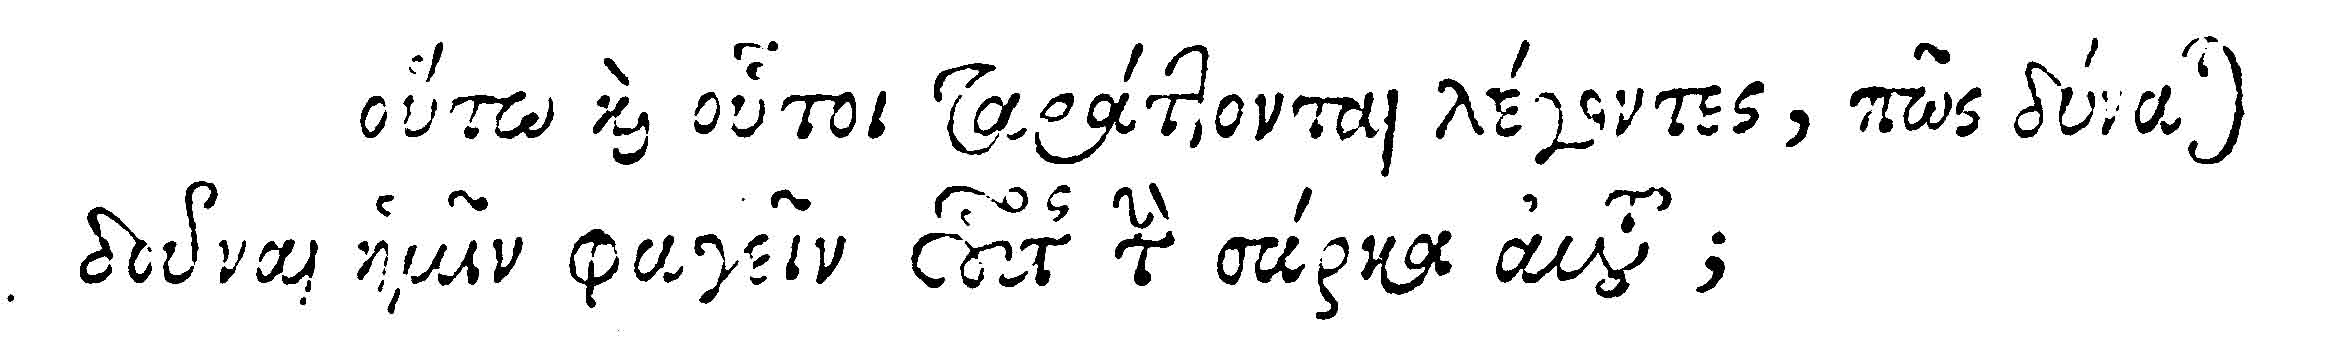 οὕτω ϗ̀ οὗτοι ταράττονται λέγοντες, πῶς δύναται
δοῦναι ἡμῖν φαγεῖν οὗτος τὴν σάρκα αὐτοῦ;